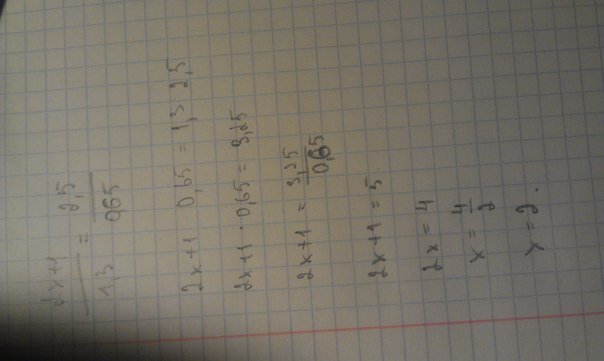 2x+1/1,3 = 2,5/0,65
2x+1 0,65 = 1,3 2,5
2x+1 · 0,65 = 3,25
2x+1 = 3,25/0,65
2x+1 = 5
2x = 4
x = 4/2
x = 2.